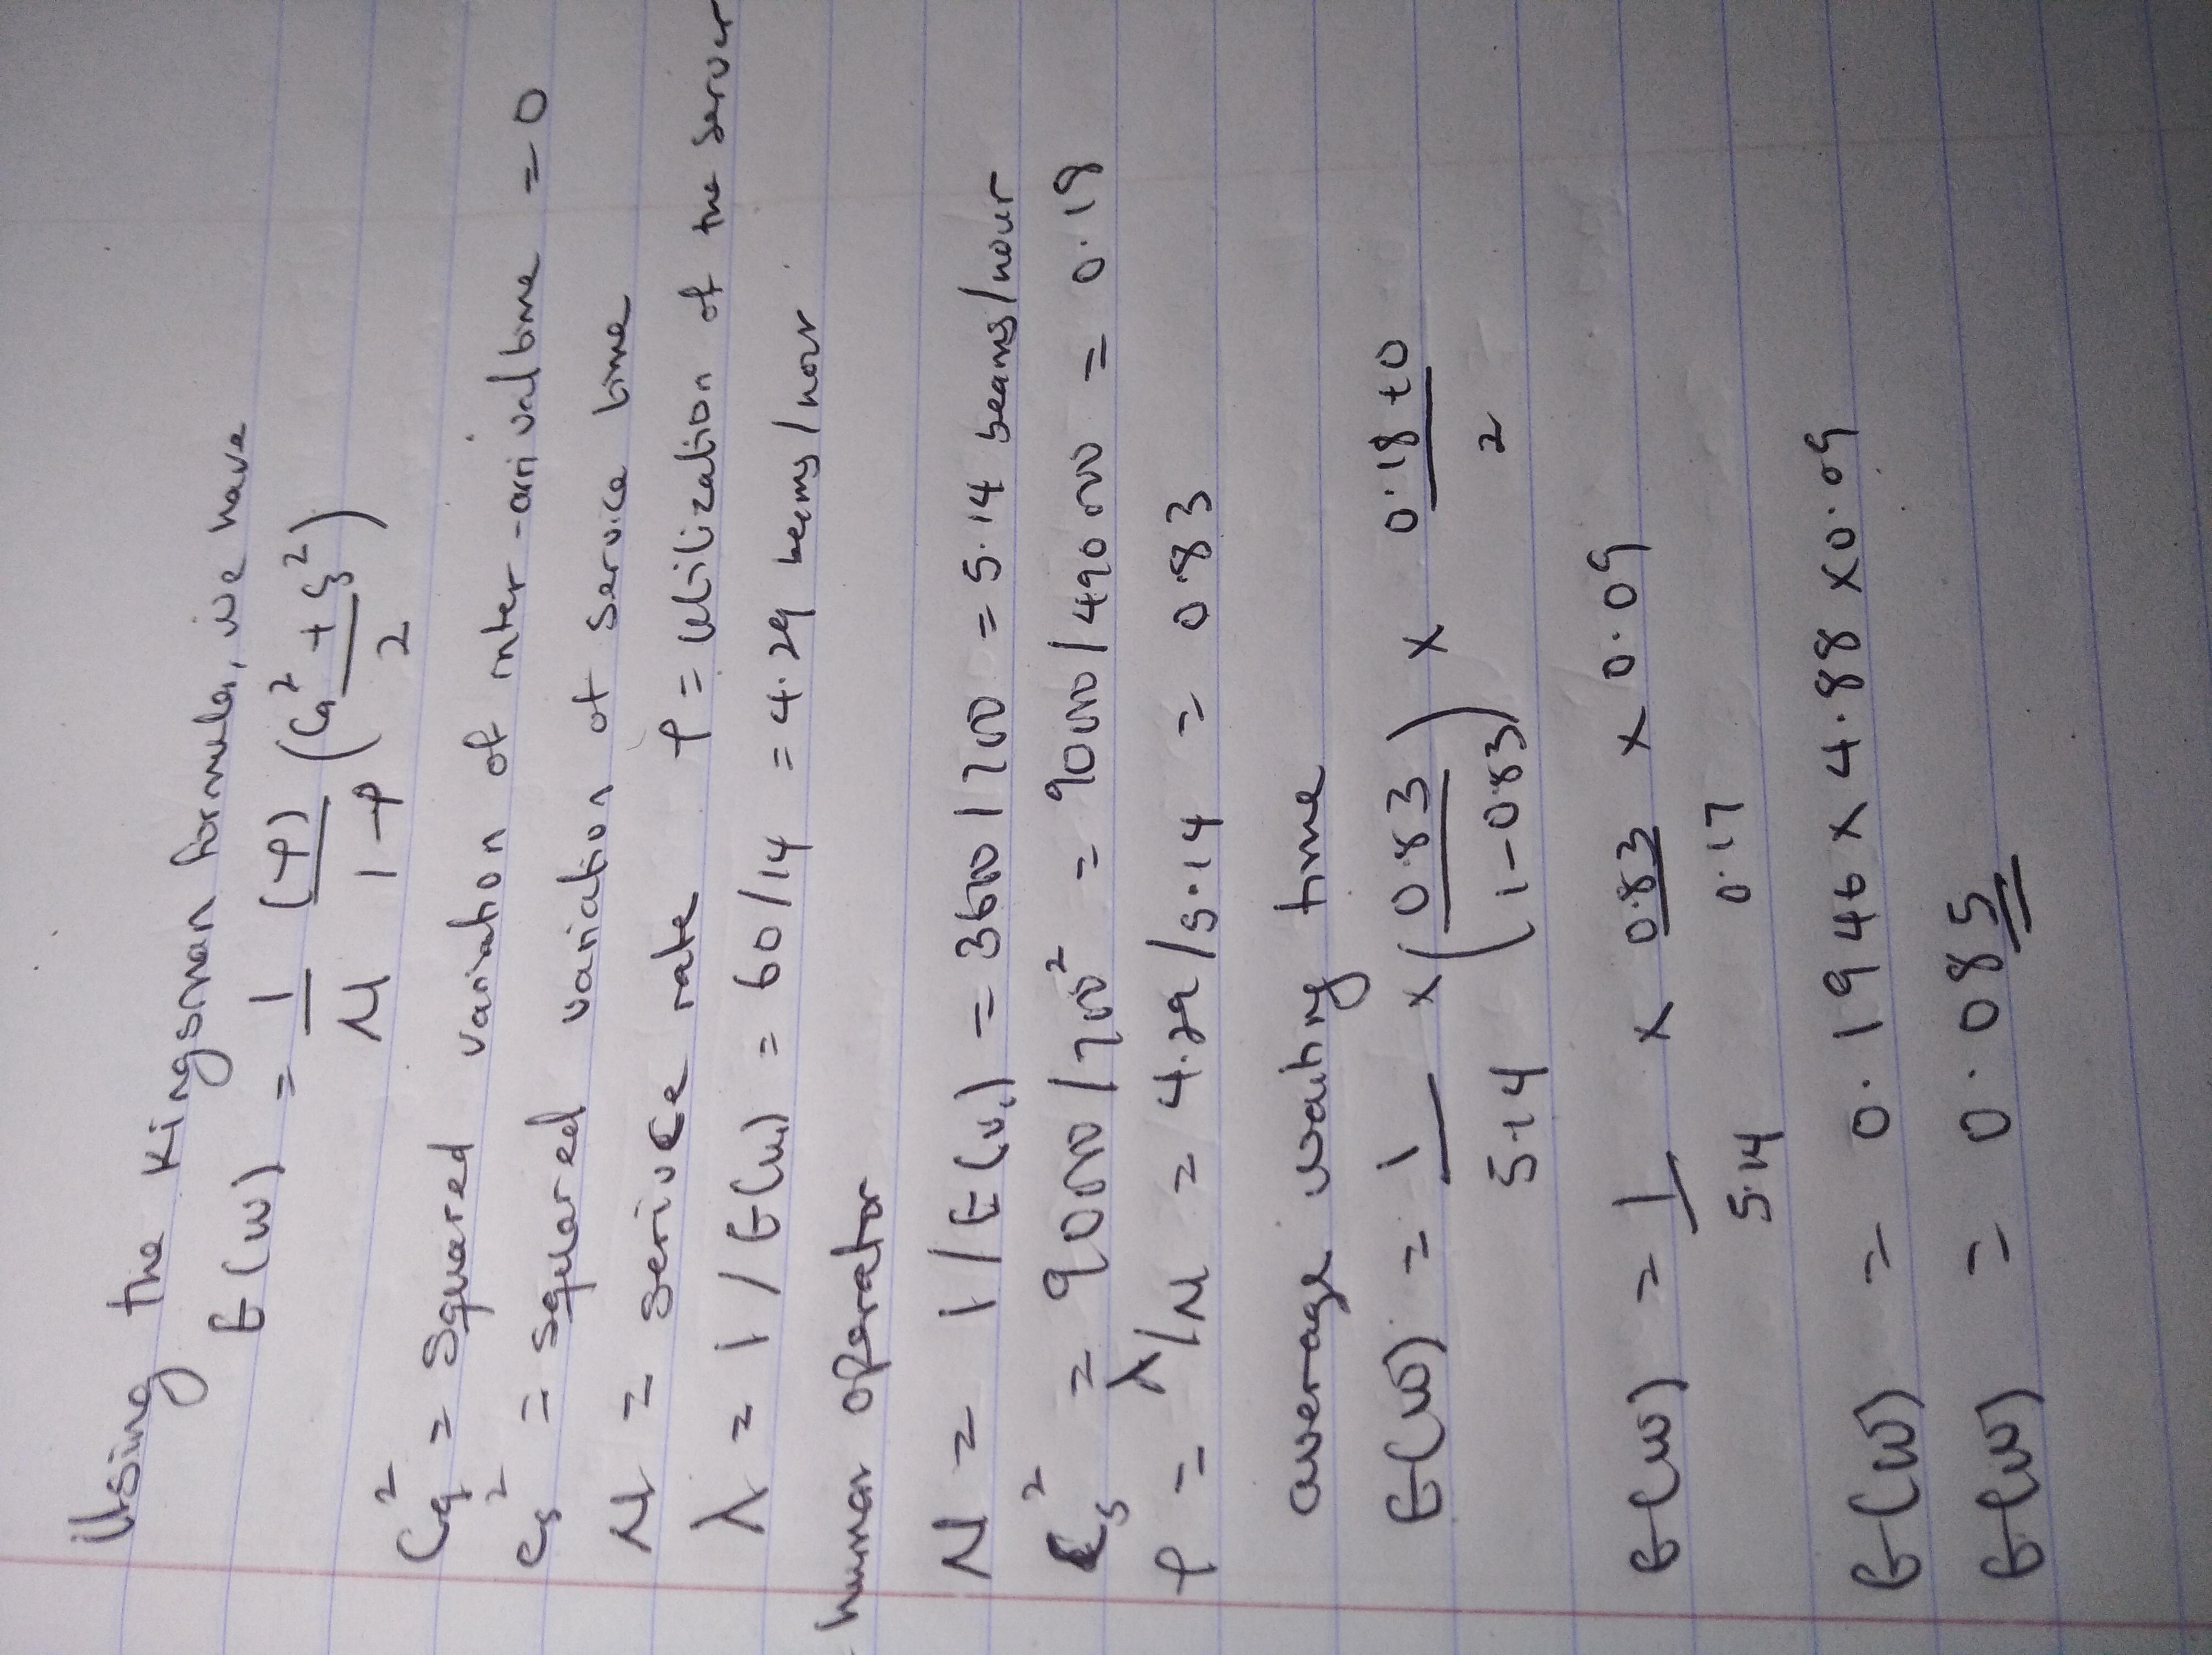 Using the Kingsman formula, we have
E(w) = 1/μ (ρ)/1-ρ (Ca² + Cs²)/2
Ca² = Squared variation of inter-arrival time = 0
Cs² = squared variation of service time
μ = serivce rate ρ = Utilization of the server
λ = 1/E(u) = 60/14 = 4.29 beams/hour
- human operator
μ = 1/E(u) = 3600/700 = 5.14 beams/hour
Cs² = 90000/700² = 90000/490000 = 0.18
ρ = λ/μ = 4.29/5.14 = 0.83
average waiting time
E(w) = 1/5.14 × (0.83/(1-0.83)) × 0.18+0/2
E(w) = 1/5.14 × 0.83/0.17 × 0.09
E(w) = 0.1946 × 4.88 × 0.09
E(w) = 0.085